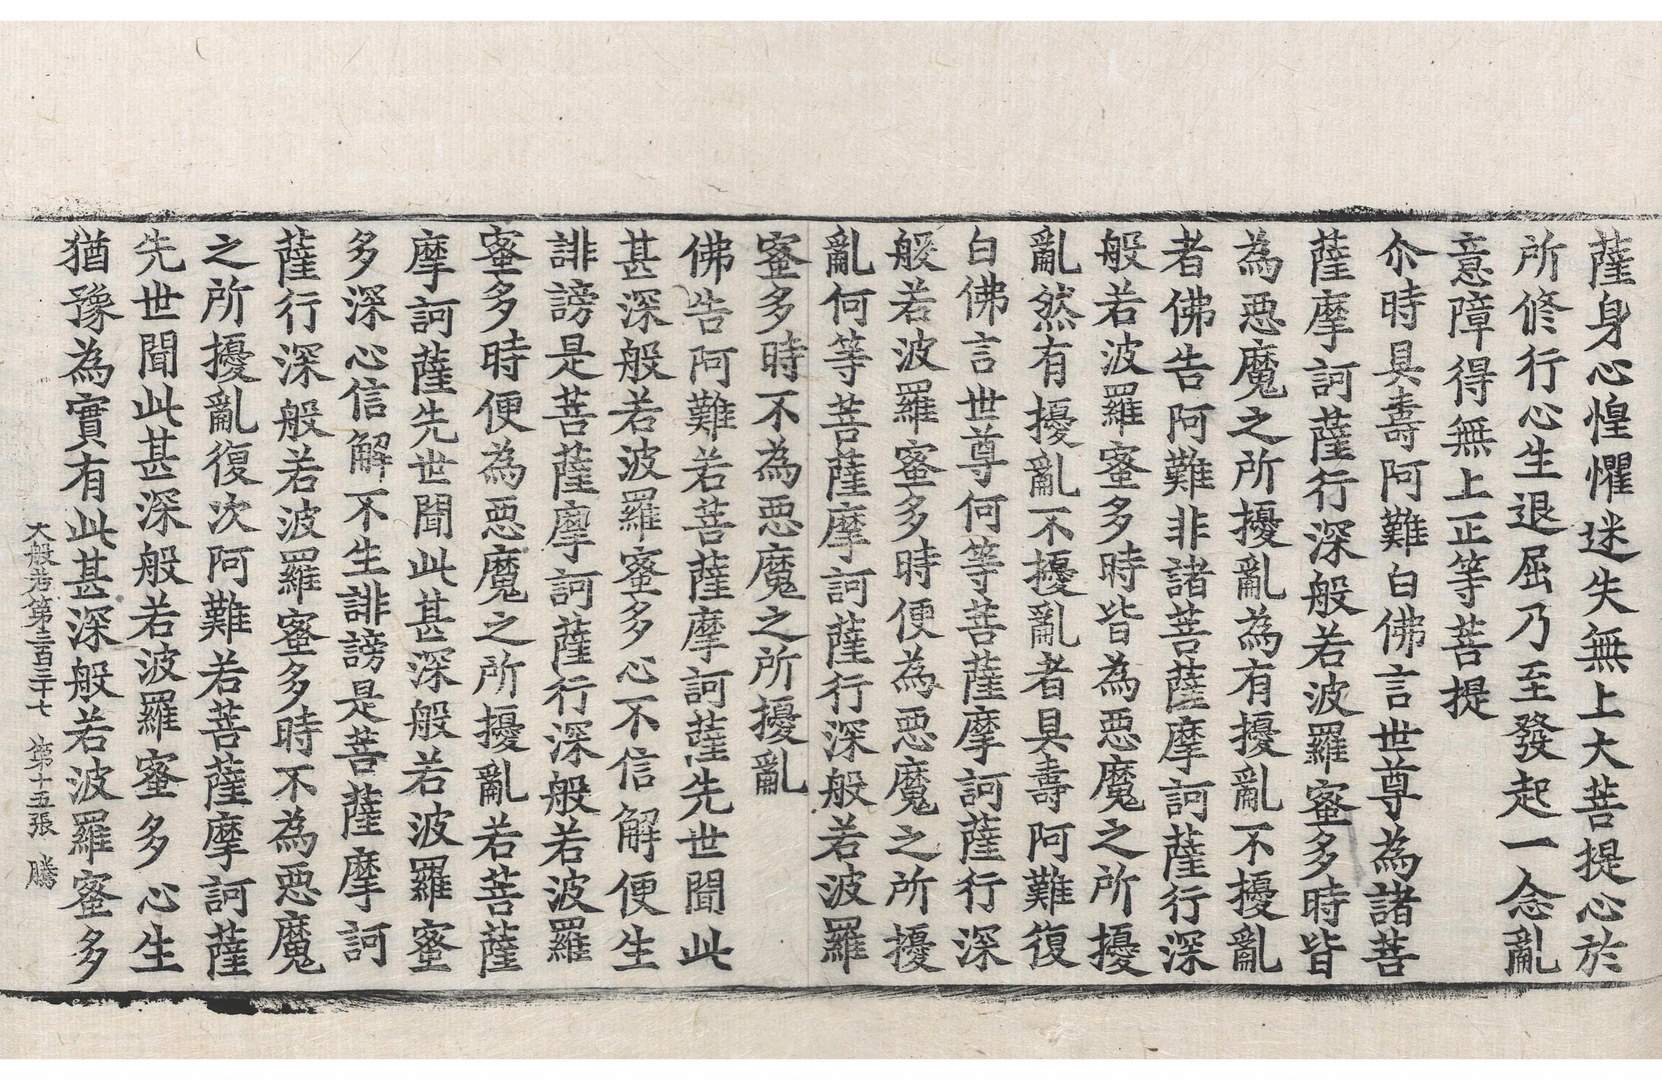 薩身心惶懼迷失無上大菩提心於
所修行心生退屈乃至發起一念亂
意障得無上正等菩提
尒時具壽阿難白佛言世尊為諸菩
薩摩訶薩行深般若波羅蜜多時皆
為惡魔之所擾亂為有擾亂不擾亂
者佛告阿難非諸菩薩摩訶薩行深
般若波羅蜜多時皆為惡魔之所擾
亂然有擾亂不擾亂者具壽阿難復
白佛言世尊何等菩薩摩訶薩行深
般若波羅蜜多時便為惡魔之所擾
亂何等菩薩摩訶薩行深般若波羅
蜜多時不為惡魔之所擾亂
佛告阿難若菩薩摩訶薩先世聞此
甚深般若波羅蜜多心不信解便生
誹謗是菩薩摩訶薩行深般若波羅
蜜多時便為惡魔之所擾亂若菩薩
摩訶薩先世聞此甚深般若波羅蜜
多深心信解不生誹謗是菩薩摩訶
薩行深般若波羅蜜多時不為惡魔
之所擾亂復次阿難若菩薩摩訶薩
先世聞此甚深般若波羅蜜多心生
猶豫為實有此甚深般若波羅蜜多
大般若第三百三十七 第十五張 騰